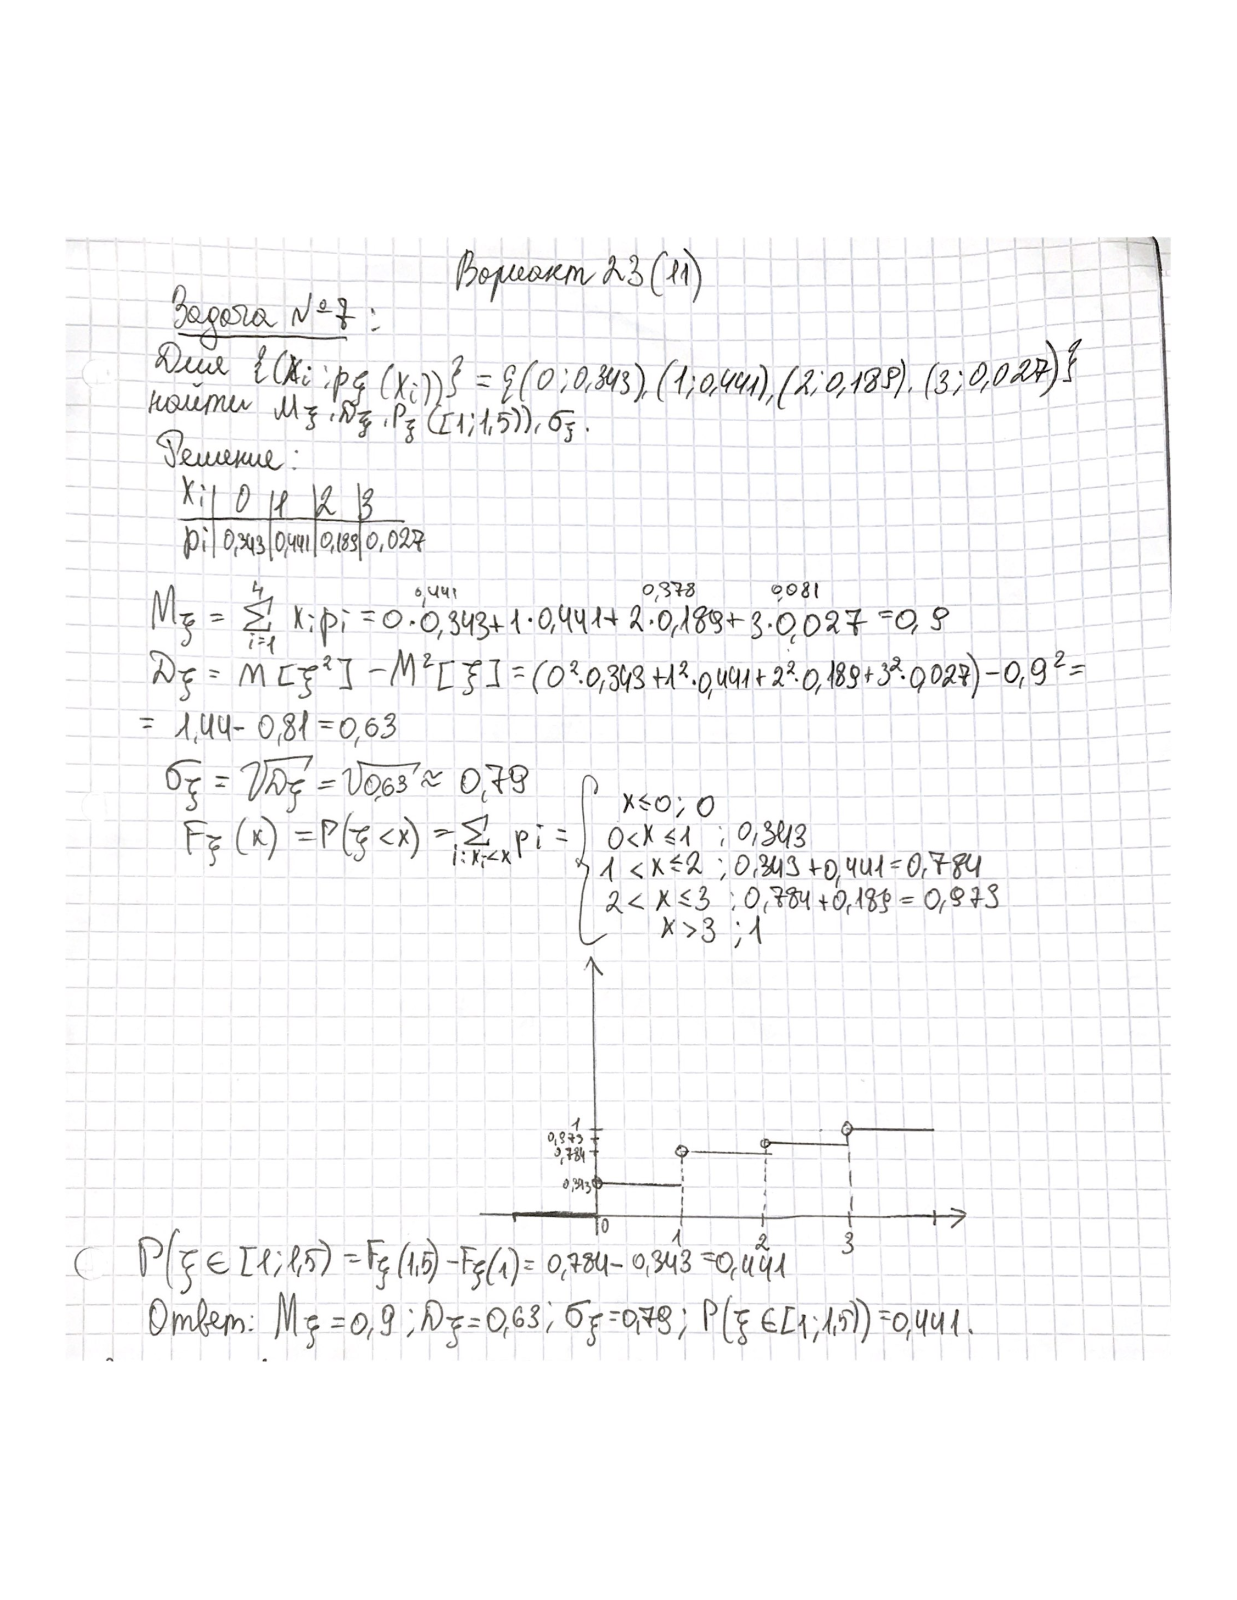 Вариант 23 (11)
Задача №7:
Для {(xi; pξ(xi))} = {(0; 0,343), (1; 0,441), (2; 0,189), (3; 0,027)}
найти Mξ, Dξ, Pξ([1; 1,5)), σξ.
Решение:
xi | 0 | 1 | 2 | 3
pi | 0,343 | 0,441 | 0,189 | 0,027
0,441 0,378 0,081
Mξ = ∑ᵢ₌₁⁴ xi pi = 0·0,343 + 1·0,441 + 2·0,189 + 3·0,027 = 0,9
Dξ = M[ξ²] - M²[ξ] = (0²·0,343 + 1²·0,441 + 2²·0,189 + 3²·0,027) - 0,9² =
= 1,44 - 0,81 = 0,63
σξ = √Dξ = √0,63 ≈ 0,79
x ≤ 0; 0
Fξ(x) = P(ξ < x) = ∑ i: xi < x pi = { 0 < x ≤ 1; 0,343
1 < x ≤ 2; 0,343 + 0,441 = 0,784
2 < x ≤ 3; 0,784 + 0,189 = 0,973
x > 3; 1
1
0,973
0,784
0,343
0 1 2 3
P(ξ ∈ [1; 1,5) = Fξ(1,5) - Fξ(1) = 0,784 - 0,343 = 0,441
Ответ: Mξ = 0,9; Dξ = 0,63; σξ = 0,79; P(ξ ∈ [1; 1,5)) = 0,441.